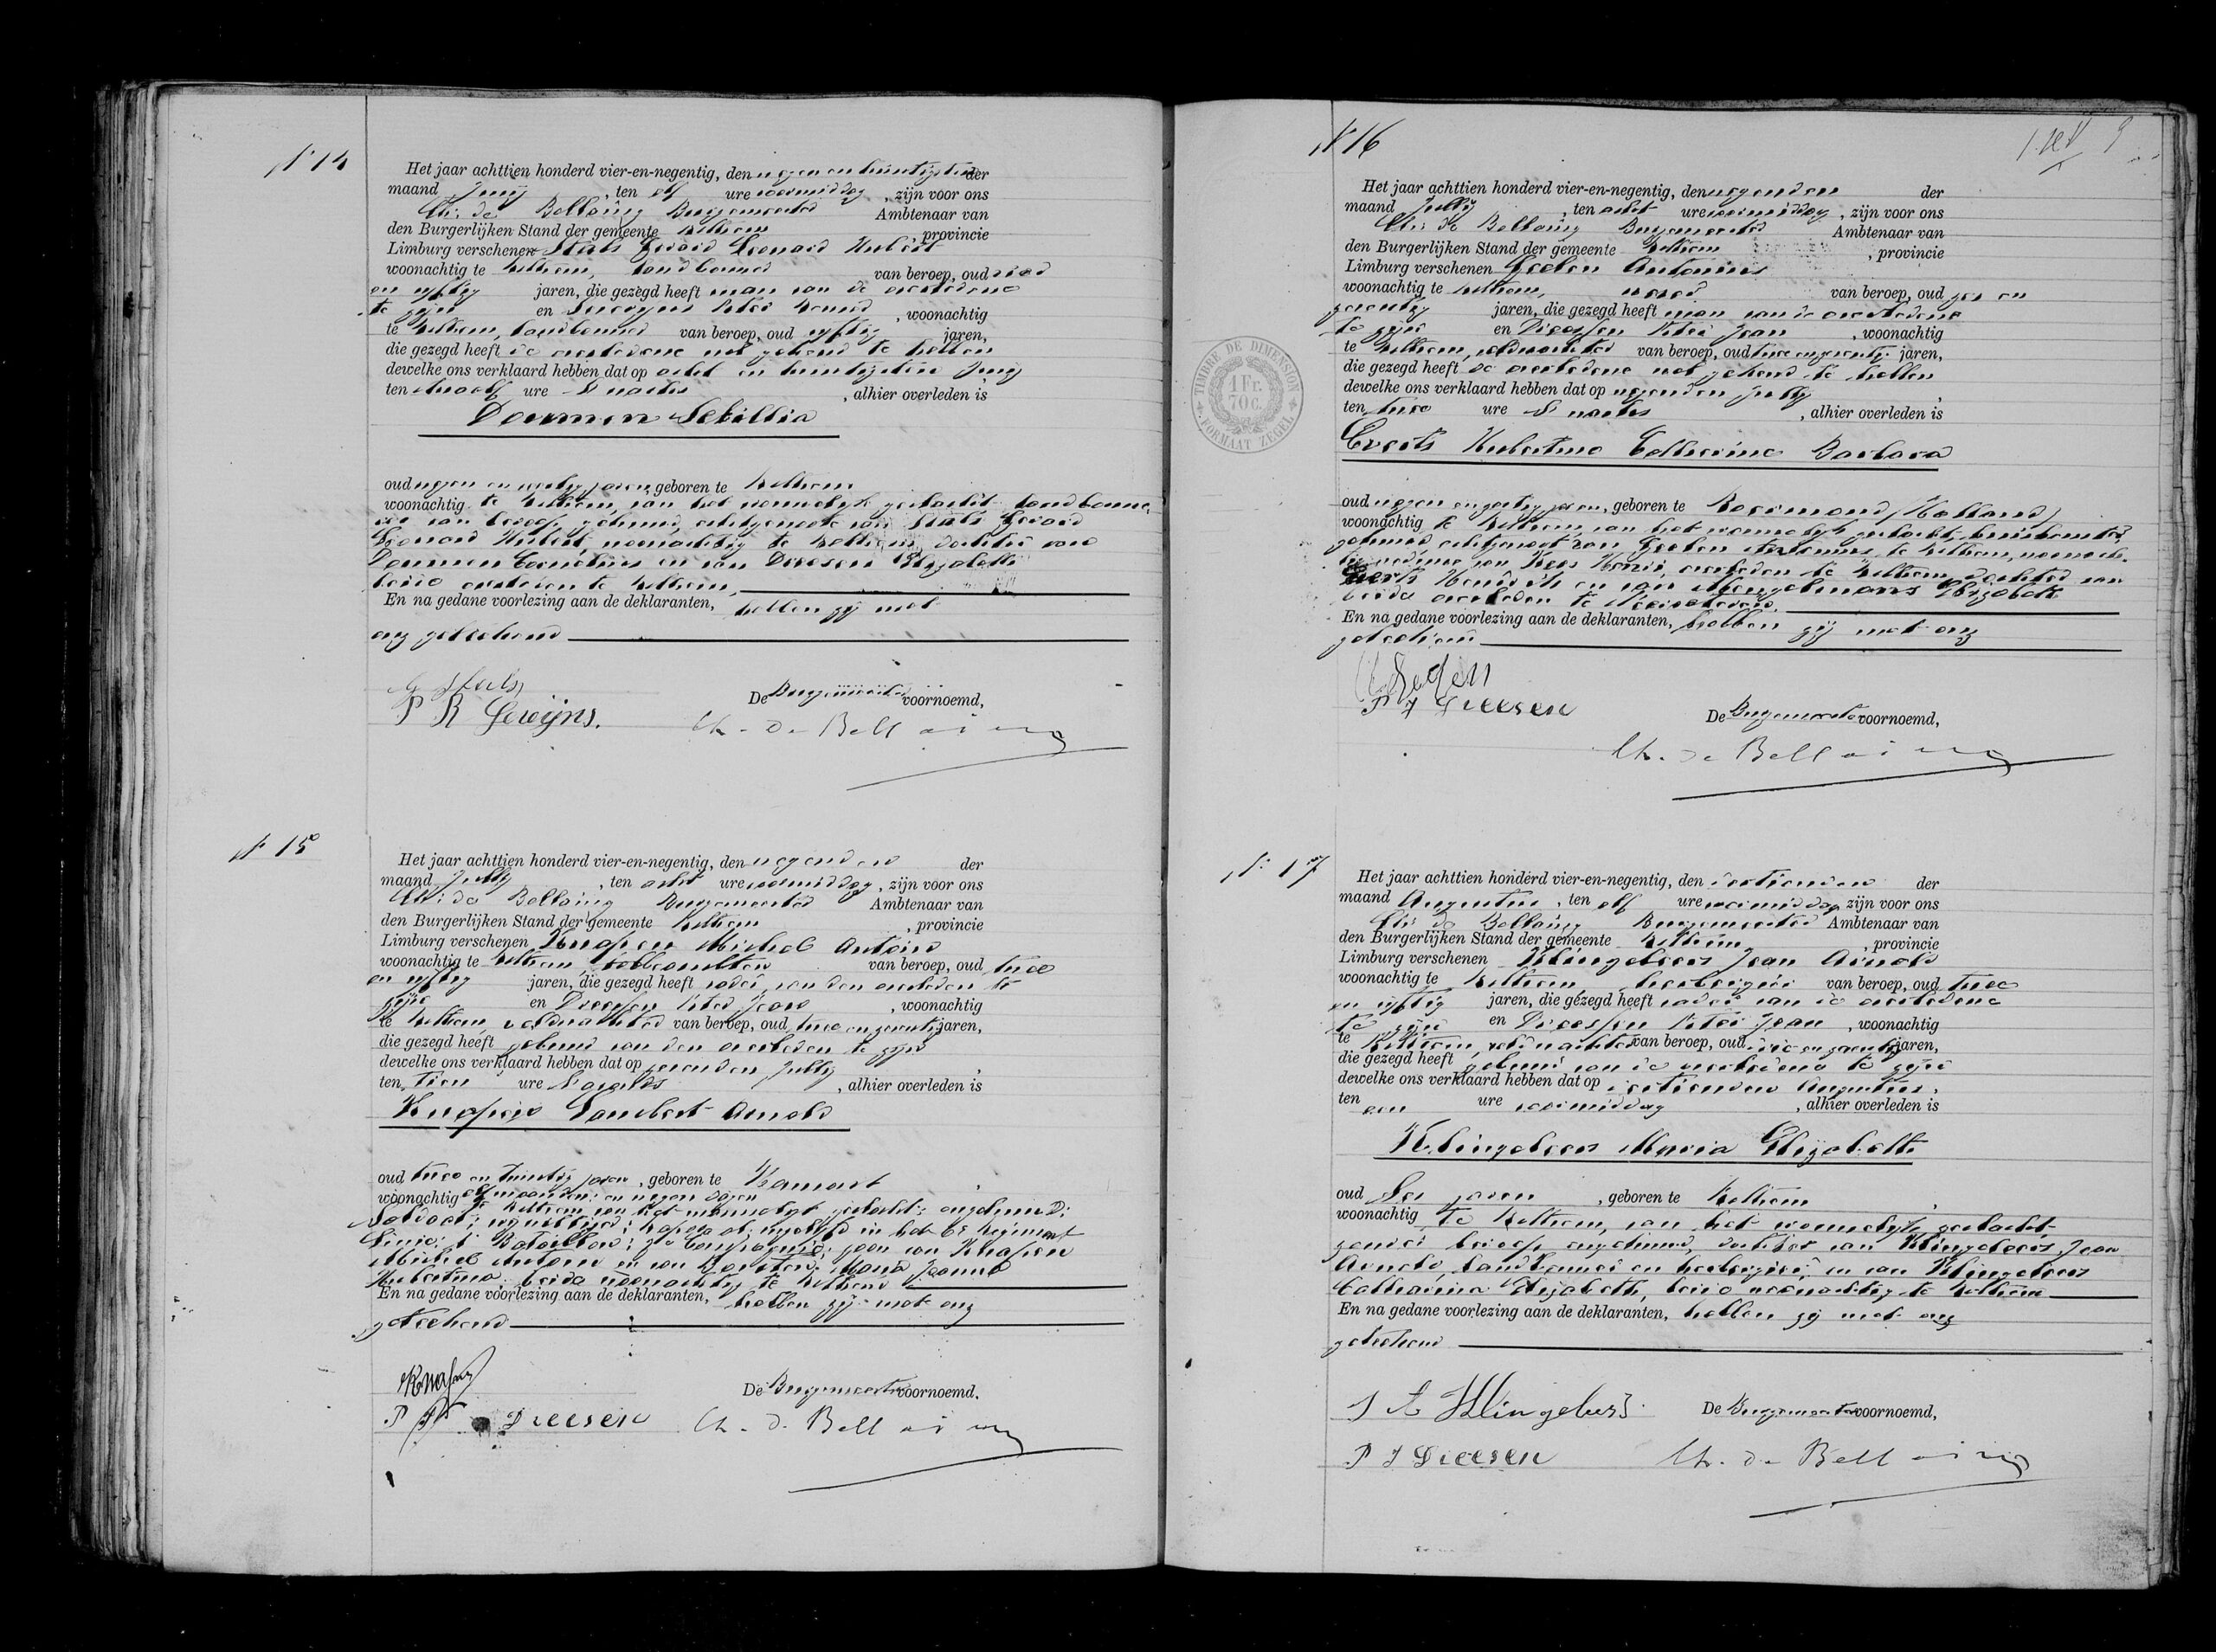 N 14
Het jaar achttien honderd vier-en-negentig, den negen en twintigsten der
maand Junij , ten elf ure voormiddag , zijn voor ons
Ch: de Bellaing Burgemeester Ambtenaar van
den Burgerlijken Stand der gemeente Kelhem , provincie
Limburg verschenen Stals Gerard Leonard Hubert
woonachtig te , landbouwer van beroep, oud vier
en vyftig jaren, die gezegd heeft man van de overledene
te zijn en Pieter , woonachtig
te , landbouwer van beroep, oud vyftig jaren,
die gezegd heeft de overledene wel gekend te hebben
dewelke ons verklaard hebben dat op acht en twintigsten Junij
ten twaalf ure S nachts , alhier overleden is
Doumen Sebillia
oud negen en jaren, geboren te
woonachtig te van het vrouwelyk geslacht landbouw-
van beroep, gehuwd, echtgenoote van Stals Gerard
Leonard Hubert, woonachtig te dochter van
Doumen Cornelius en van Driesen Elizabeth
beide overleden te
En na gedane voorlezing aan de deklaranten, hebben zij met
ons geteekend
G Stals
P R Gewijns.
De Burgemeester voornoemd,
Ch. de Bellaing
N 15
Het jaar achttien honderd vier-en-negentig, den negenden der
maand Julij , ten acht ure voormiddag , zijn voor ons
Ch: de Bellaing Burgemeester Ambtenaar van
den Burgerlijken Stand der gemeente , provincie
Limburg verschenen Knapen Michel Antoine
woonachtig te van beroep, oud twee
en vyftig jaren, die gezegd heeft vader van den overleden te
zijn en Driessen Peter Jean , woonachtig
te , veldwachter van beroep, oud twee en zeventig jaren,
die gezegd heeft gebuur van den overleden te zijn
dewelke ons verklaard hebben dat op Julij ,
ten tien ure S avonds , alhier overleden is
Knapen Lambert Arnold
oud twee en twintig jaren , geboren te ,
woonachtig elf maanden en negen dagen
te van het mannelyk geslacht, ongehuwd:
Soldaat, in het Regiment
Linie: Bataillon: Compagnie: zoon van Knapen
Michel Antoine en van Maria Jeanne
Hubertina, beide woonachtig te
En na gedane voorlezing aan de deklaranten, hebben zij met ons
geteekend
Knapen
P J Dreesen
De Burgemeester voornoemd.
Ch. de Bellaing
N 16
9
Het jaar achttien honderd vier-en-negentig, den negenden der
maand Julij , ten acht ure voormiddag , zijn voor ons
Ch: de Bellaing Burgemeester Ambtenaar van
den Burgerlijken Stand der gemeente , provincie
Limburg verschenen Geelen Antonius
woonachtig te van beroep, oud zes en
jaren, die gezegd heeft man van de overledene
te zijn en Driessen Peter Jean , woonachtig
te , veldwachter van beroep, oud twee en zeventig jaren,
die gezegd heeft de overledene wel gekend te hebben
dewelke ons verklaard hebben dat op negenden Julij ,
ten twee ure S nachts , alhier overleden is
TIMBRE DE DIMENSION
1 Fr.
70 c.
FORMAAT ZEGEL
Everts Hubertina Catherina Barbara
oud negen en jaren, geboren te Roermond (Holland)
woonachtig te van het vrouwelyk geslacht,
gehuwd, echtgenoot van Geelen Antonius te
weduwe van overleden te dochter van
Everts Hendrik en van Elizabeth
beide overleden te
En na gedane voorlezing aan de deklaranten, hebben zij met ons
geteekend
P J Dreesen
De Burgemeester voornoemd,
Ch. de Bellaing
N: 17
Het jaar achttien honderd vier-en-negentig, den dertienden der
maand Augustus , ten elf ure voormiddag zijn voor ons
Ch: de Bellaing Burgemeester Ambtenaar van
den Burgerlijken Stand der gemeente , provincie
Limburg verschenen Klingeleers Jean Arnold
woonachtig te herbergier van beroep, oud twee
en vyftig jaren, die gezegd heeft vader van de overledene
te zijn en Driessen Peter Jean , woonachtig
te , veldwachter van beroep, oud en zeventig jaren,
die gezegd heeft gebuur van de overledene te zijn
dewelke ons verklaard hebben dat op dertienden Augustus ,
ten een ure voormiddag , alhier overleden is
Klingeleers Maria Elizabeth
oud jaren , geboren te ,
woonachtig te van het vrouwelyk geslacht
zonder beroep, ongehuwd, dochter van Klingeleers Jean
Arnold, landbouwer en herbergier en van Klingeleers
Catharina Elizabeth, beide woonachtig te
En na gedane voorlezing aan de deklaranten, hebben zij met ons
geteekend
J A Klingeleers
P J Dreesen
De Burgemeester voornoemd,
Ch. de Bellaing